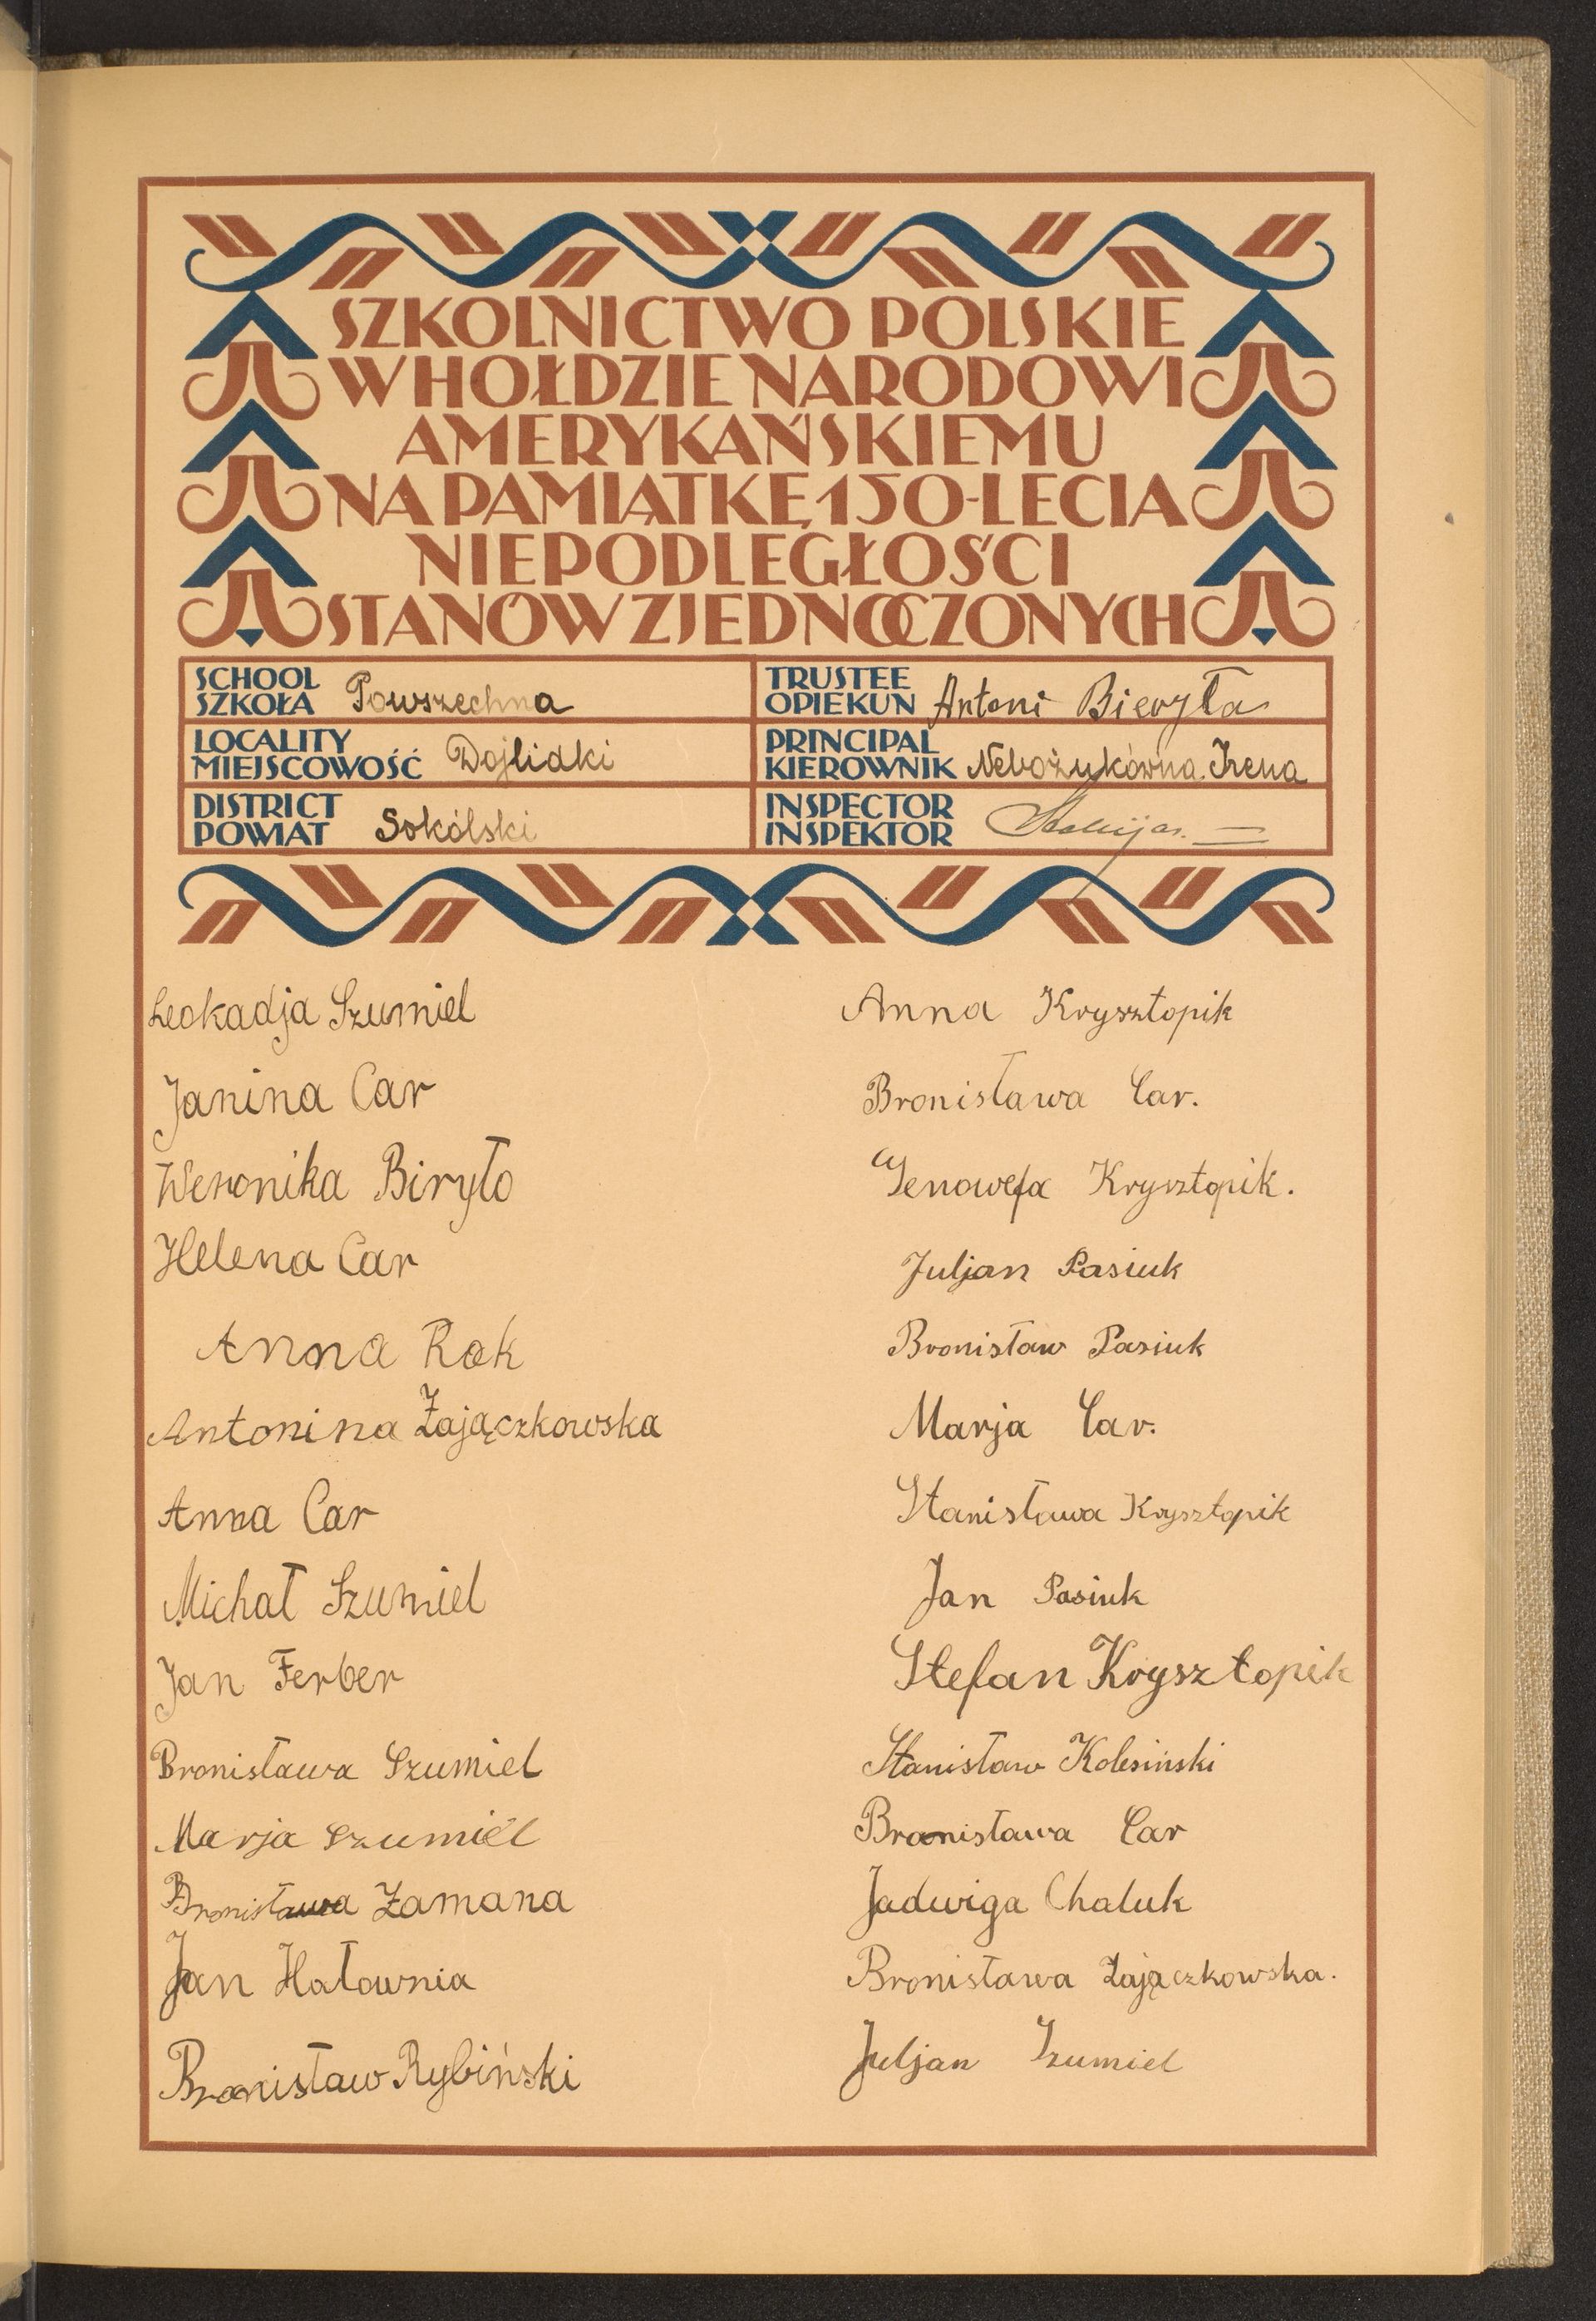 SZKOLNICTWO POLSKIE
W HOŁDZIE NARODOWI
AMERYKAŃSKIEMU
NA PAMIĄTKĘ 150-LECIA
NIEPODLEGŁOŚCI
STANÓW ZJEDNOCZONYCH
SCHOOL
SZKOŁA Powszechna
TRUSTEE
OPIEKUN Antoni Bieryła
LOCALITY
MIEJSCOWOŚĆ Dojlidki
PRINCIPAL
KIEROWNIK Nebożukówna Irena
DISTRICT
POWIAT Sokólski
INSPECTOR
INSPEKTOR
Leokadja Szumiel
Janina Car
Weronika Biryło
Helena Car
Anna Rak
Antonina Zajączkowska
Anna Car
Michał Szumiel
Jan Ferber
Bronisława Szumiel
Marja Szumiel
Bronisława Zamana
Jan Hałownia
Bronisław Rybiński
Anna Krysztopik
Bronisława Car.
Genowefa Krysztopik.
Juljan Pasiuk
Bronisław Pasiuk
Marja Car.
Stanisława Krysztopik
Jan Pasiuk
Stefan Krysztopik
Stanisław Kolesiński
Bronisława Car
Jadwiga Chaluk
Bronisława Zajączkowska.
Juljan Szumiel